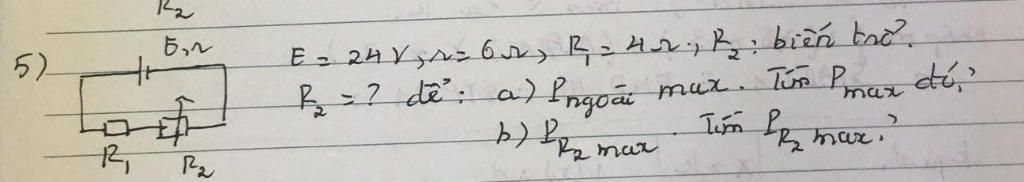 R₂
5) E,r E = 24V, r = 6Ω, R₁ = 4Ω, R₂: biến trở.
R₂ = ? để: a) Pngoài max. Tìm Pmax đó?
R₁ R₂ b) PR₂ max. Tìm PR₂ max?